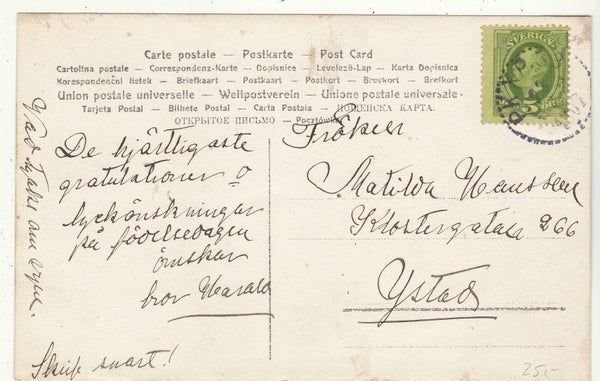 Carte postale — Postkarte — Post Card
Cartolina postale — Correspondenz-Karte — Dopisnice — Levelező-Lap — Karta Dopisnica
Korespondenční listek — Briefkaart — Postkaart — Postkort — Brevkort — Brefkort
Union postale universelle — Weltpostverein — Unione postale universale
Tarjeta Postal — Bilhete Postal — Carta Postala — ПОЩЕНСКА КАРТА.
ОТКРЫТОЕ ПИСЬМО — Pocztówka
SVERIGE
5
Fröken
Matilda Hansson
Klostergatan 266
Ystad
De hjärtligaste
gratulationer o
lyckönskningar
på födelsedagen
önskar
bror Harald
Skrif snart!
25:-